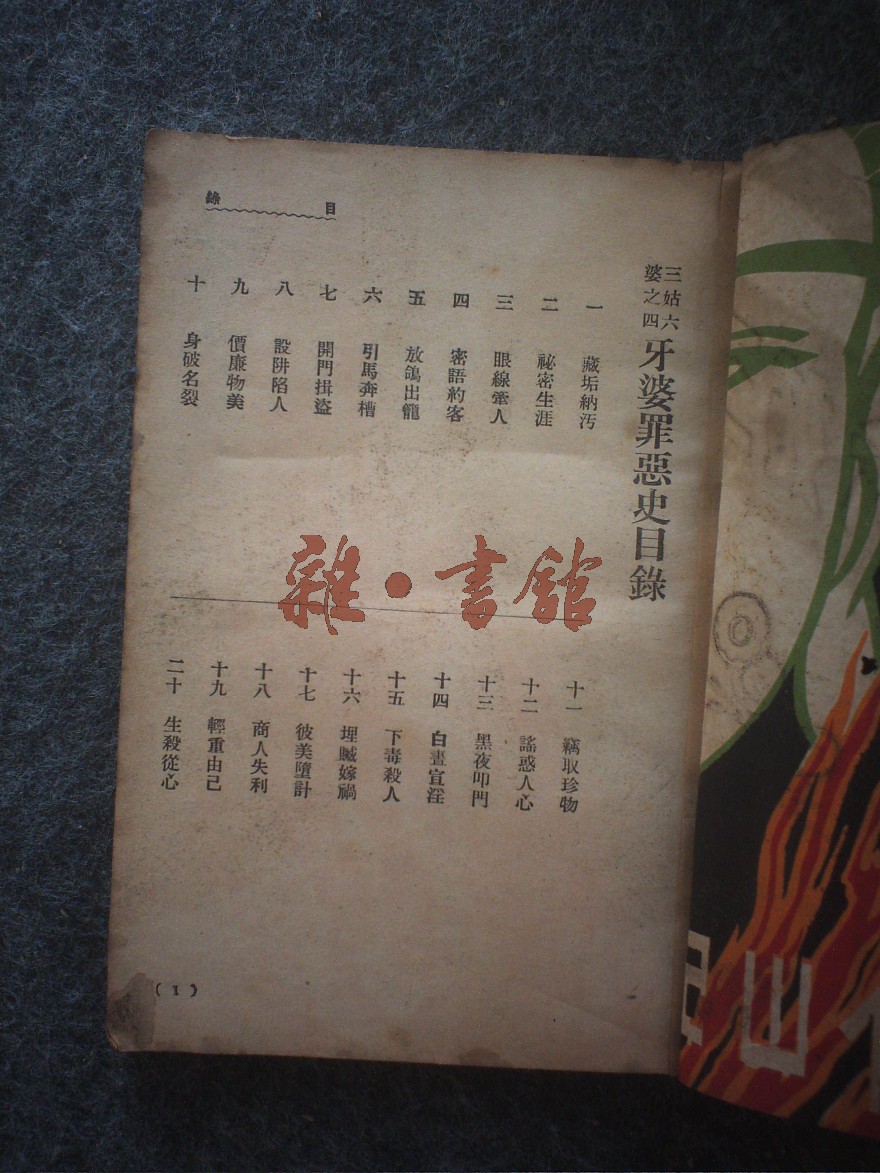 目錄
三姑六婆之四
牙婆罪惡史目錄
一 藏垢納汚
二 祕密生涯
三 眼線牽人
四 密語約客
五 放鴿出籠
六 引馬奔槽
七 開門揖盜
八 設阱陷人
九 價廉物美
十 身破名裂
十一 竊取珍物
十二 謠惑人心
十三 黑夜叩門
十四 白晝宣淫
十五 下毒殺人
十六 埋贓嫁禍
十七 彼美墮計
十八 商人失利
十九 輕重由己
二十 生殺從心
(1)
雜·書館